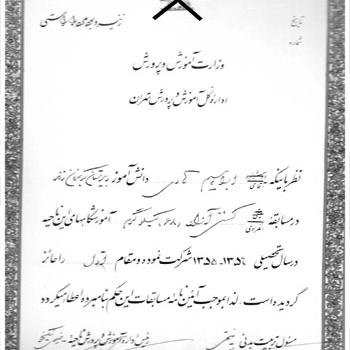 تاریخ
شماره
وزارت آموزش و پرورش
اداره کل آموزش و پرورش تهران
نظر باینکه دانش آموز
در مسابقه کشتی آزاد (۶۸) کیلوگرم آموزشگاههای این ناحیه
در سال تحصیلی ۱۳۵۶-۱۳۵۵ شرکت نموده و مقام اول را حائز
گردیده است، لذا بموجب آئین نامه مسابقات این حکم بنامبرده اعطا میگردد
مسئول تربیت بدنی رئیس اداره آموزش و پرورش ناحیه